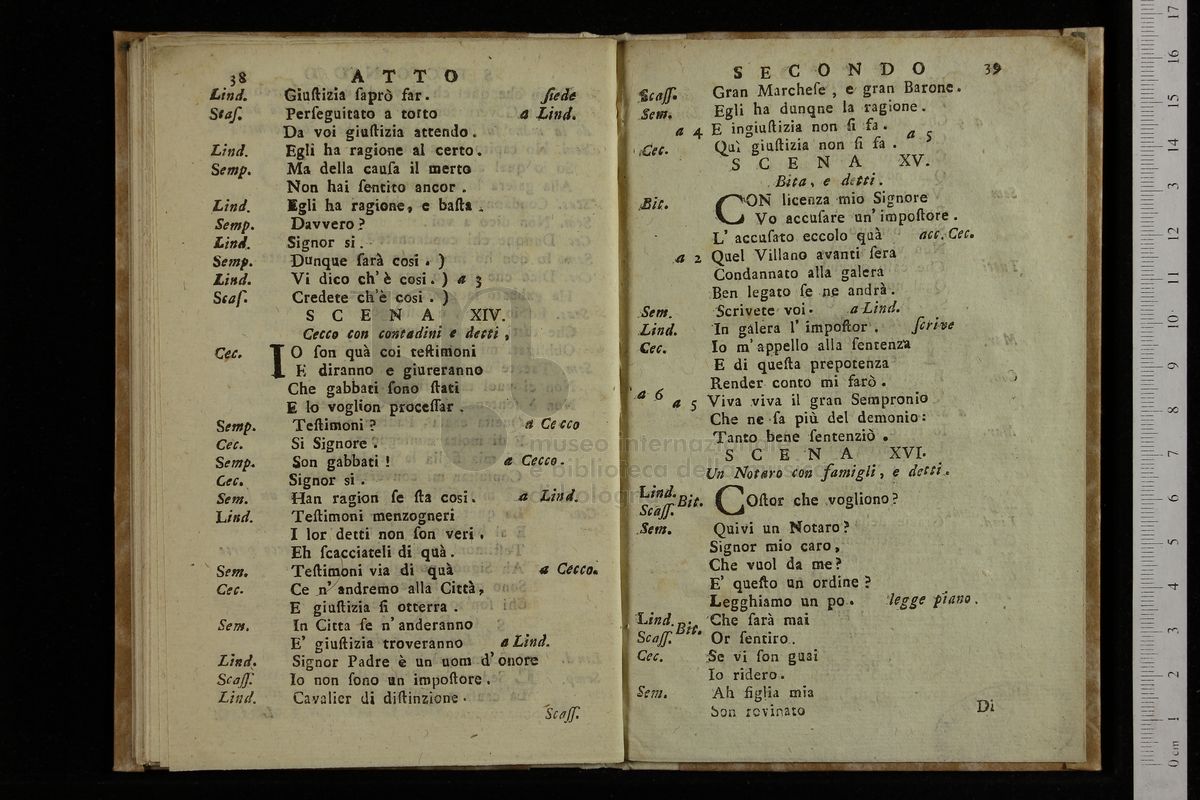 38 ATTO
Lind. Giuſtizia ſaprò far. ſiede
Scaſ. Perſeguitato a torto a Lind.
Da voi giuſtizia attendo.
Lind. Egli ha ragione al certo.
Semp. Ma della cauſa il merto
Non hai ſentito ancor.
Lind. Egli ha ragione, e baſta.
Semp. Davvero?
Lind. Signor si.
Semp. Dunque ſarà così. )
Lind. Vi dico ch'è così. ) a 3
Scaſ. Credete ch'è così. )
SCENA XIV.
Cecco con contadini e detti,
Cec. IO ſon quà coi teſtimoni
E diranno e giureranno
Che gabbati ſono ſtati
E lo voglion proceſſar.
Semp. Teſtimoni? a Cecco
Cec. Si Signore.
Semp. Son gabbati! a Cecco.
Cec. Signor si.
Sem. Han ragion ſe ſta così. a Lind.
Lind. Teſtimoni menzogneri
I lor detti non ſon veri.
Eh ſcacciateli di quà.
Sem. Teſtimoni via di quà a Cecco.
Cec. Ce n'andremo alla Città,
E giuſtizia ſi otterra.
Sem. In Citta ſe n'anderanno
E' giuſtizia troveranno a Lind.
Lind. Signor Padre è un uom d'onore
Scaſſ. Io non ſono un impoſtore.
Lind. Cavalier di diſtinzione.
Scaſſ.
SECONDO 39
Scaſſ. Gran Marcheſe, e gran Barone.
Sem. Egli ha dunqne la ragione.
a 4 E ingiuſtizia non ſi fa. a 5
Cec. Quì giuſtizia non ſi fa.
SCENA XV.
Bita, e detti.
Bit. CON licenza mio Signore
Vo accuſare un'impoſtore.
L'accuſato eccolo quà acc. Cec.
a 2 Quel Villano avanti ſera
Condannato alla galera
Ben legato ſe ne andrà.
Sem. Scrivete voi. a Lind.
Lind. In galera l'impoſtor. ſcrive
Cec. Io m'appello alla ſentenza
E di queſta prepotenza
Render conto mi farò.
a 6 a 5 Viva viva il gran Sempronio
Che ne ſa più del demonio:
Tanto bene ſentenziò.
SCENA XVI.
Un Notaro con famigli, e detti.
Lind. Scaſſ. Bit. COſtor che vogliono?
Sem. Quivi un Notaro?
Signor mio caro,
Che vuol da me?
E' queſto un ordine?
Legghiamo un po. legge piano.
Lind. Scaſſ. Bit. Che ſarà mai
Or ſentiro.
Cec. Se vi ſon guai
Io ridero.
Sem. Ah figlia mia
Son rovinato
Di
museo internazionale
e biblioteca della